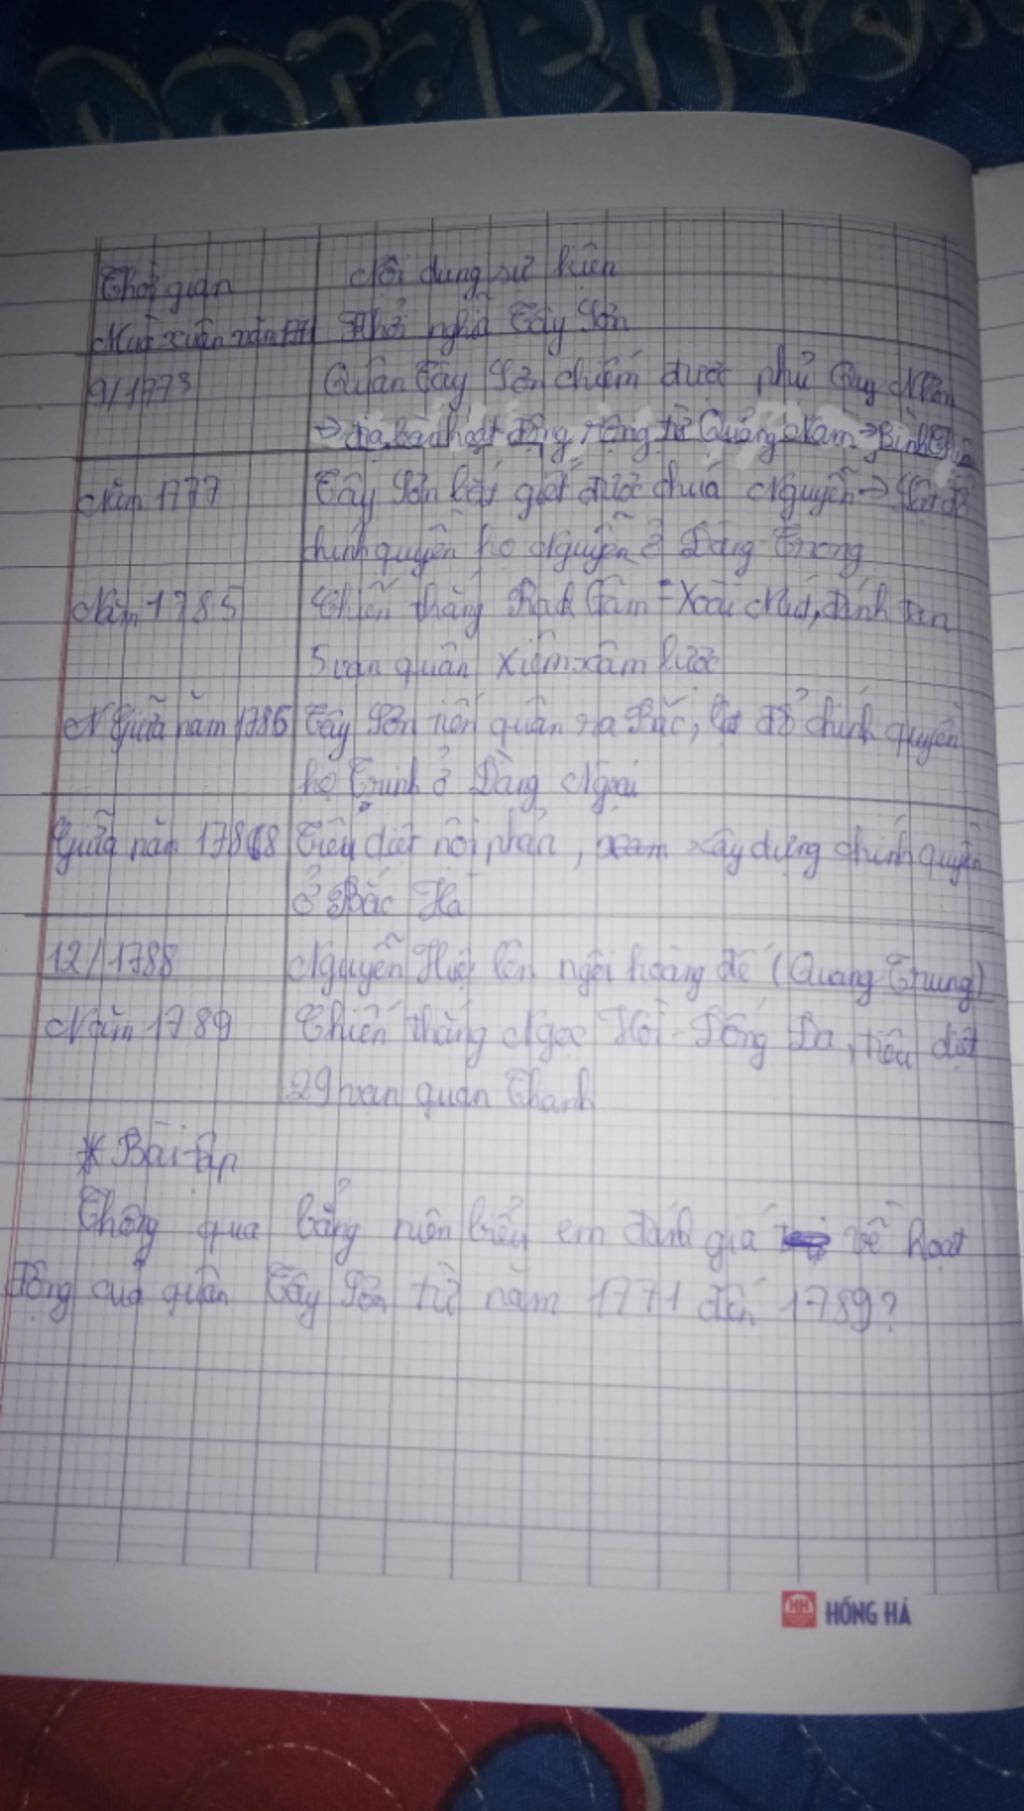 Thời gian Nội dung sự kiện
Mùa xuân năm 1771 Khởi nghĩa Tây Sơn
9/1773 Quân Tây Sơn chiếm được phủ Quy Nhơn
→ địa bàn hoạt động rộng từ Quảng Nam → Bình Thuận
Năm 1777 Tây Sơn bắt giết được chúa Nguyễn → Lật đổ
chính quyền họ Nguyễn ở Đàng Trong
Năm 1785 Chiến thắng Rạch Gầm - Xoài Mút, đánh tan
5 vạn quân Xiêm xâm lược
Giữa năm 1786 Tây Sơn tiến quân ra Bắc, lật đổ chính quyền
họ Trịnh ở Đàng Ngoài
Giữa năm 1788 Tiêu diệt nội phản, xây dựng chính quyền
ở Bắc Hà
12/1788 Nguyễn Huệ lên ngôi hoàng đế (Quang Trung)
Năm 1789 Chiến thắng Ngọc Hồi - Đống Đa, tiêu diệt
29 vạn quân Thanh
* Bài tập
Thông qua bảng niên biểu em đánh giá về hoạt
động của quân Tây Sơn từ năm 1771 đến 1789?
HH HỒNG HÀ